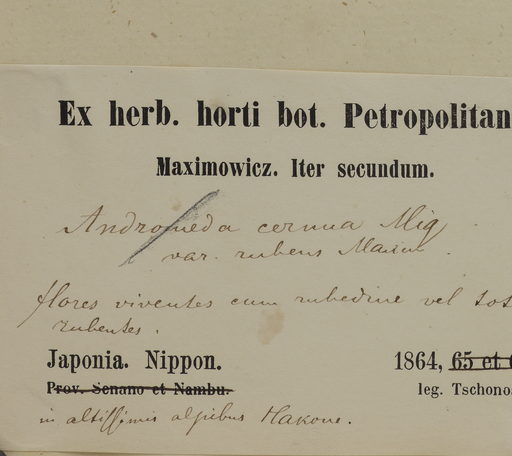 Ex herb. horti bot. Petropolitan
Maximowicz. Iter secundum.
Andromeda cernua Miq
var. rubens Maxim.
flores viventes cum rubedine vel tot
rubentes.
Japonia. Nippon. 1864, 65 et 6
Prov. Senano et Nambu. leg. Tschono
in altissimis alpibus Hakone.